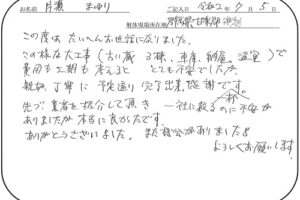 お名前 片瀬 まゆり ご記入日 令和2年7月5日
解体現場所在地
この度は たいへんお世話になりました。
この様な大工事(古い蔵3棟、車庫、納屋、温室)で
費用も工期も考えると とても不安でしたが、
親切、丁寧に 予定通り 完了出来感謝です。
先づ業者を紹介して頂き 一社に絞るのに不安が
ありましたが本当に良かったです。
ありがとうございました。また機会がありましたら
よろしくお願いします。